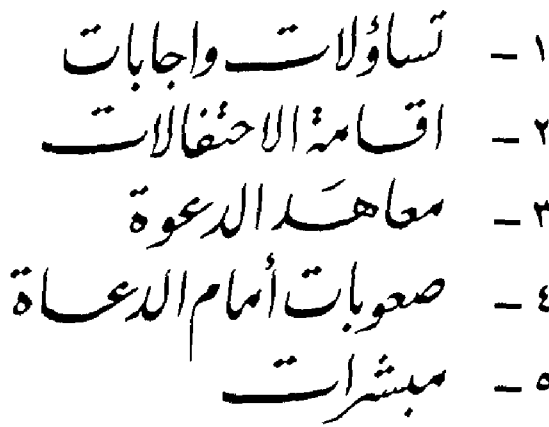 ١ - تساؤلات واجابات
٢ - اقامة الاحتفالات
٣ - معاهد الدعوة
٤ - صعوبات أمام الدعاة
٥ - مبشرات